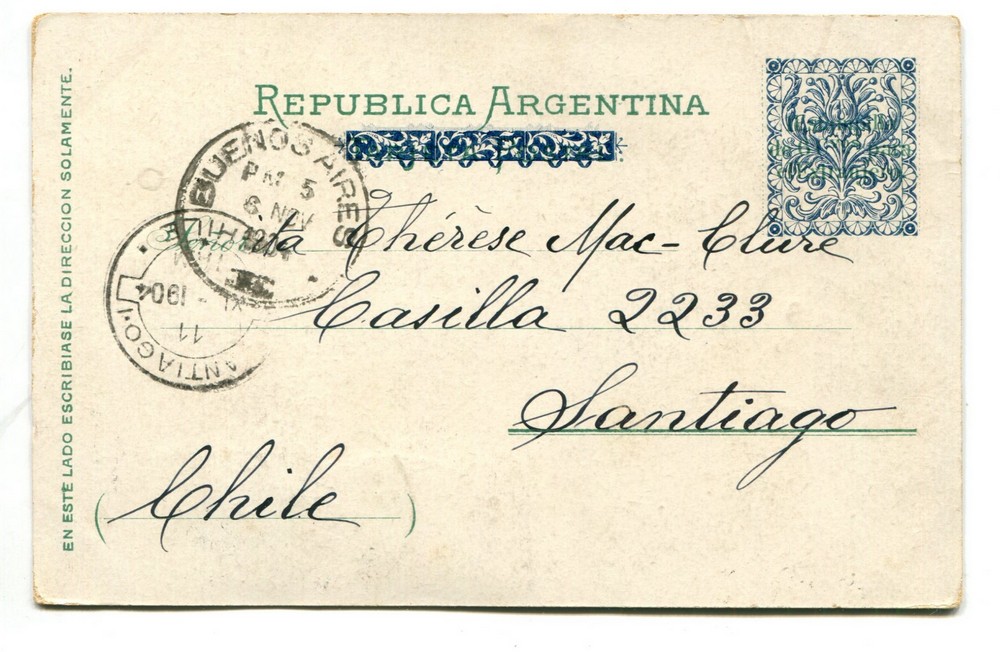 REPUBLICA ARGENTINA
EN ESTE LADO ESCRIBIASE LA DIRECCION SOLAMENTE.
BUENOS AIRES
PM 5
6. NOV
SANTIAGO·1
XI - 1904
11
Señorita Thérèse Mac-Clure
Casilla 2233
Santiago
(Chile)